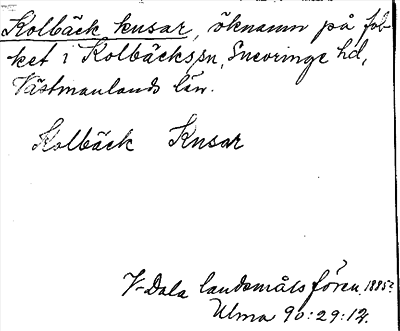 Kolbäck kusar, öknamn på fol-
ket i Kolbäckssn, Snevringe hd,
Västmanlands län.
Kolbäck Kusar
V-Dala landsmålsfören. 1885?
Ulma 90:29:12.